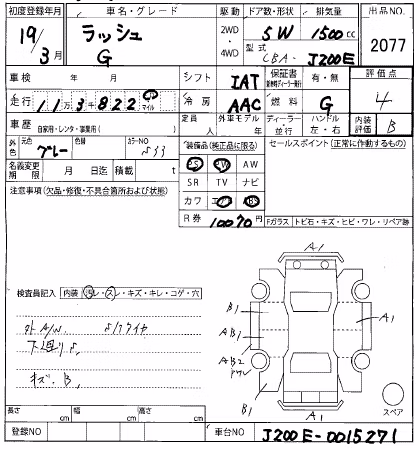 初度登録年月 車名・グレード 駆動 ドア数・形状 排気量 出品NO.
19/3月 ラッシュ G 2WD・4WD 5W 1500cc 2077
型式 CBA- J200E
車検 年 月 シフト IAT 保証書 有・無 評価点
走行 11万3千822 マイル 冷房 AAC 燃料 G 4
車歴 自家用・レンタ・事業用( ) 定員 人 外車モデル 年 ディーラー 並行 ハンドル 左・右 内装評価 B
外色 元色 グレー 色替 カラーNO 装備品(純正品に限る) セールスポイント(正常に作動するもの)
名義変更期限 月 日迄 積載 t PS PW AW
注意事項(欠品・修復・不具合箇所および状態) SR TV ナビ
カワ エアB ABS
R券 10070円 Fガラス トビ石・キズ・ヒビ・ワレ・リペア跡
A1
検査員記入 内装 汚レ・スレ・キズ・キレ・コゲ・穴
B1 A1
外A/W AB1
下廻りS AB2
キズ、B、 B1 A1 スペア
長さ cm 幅 cm 高さ cm
登録NO 車台NO J200E-0015271